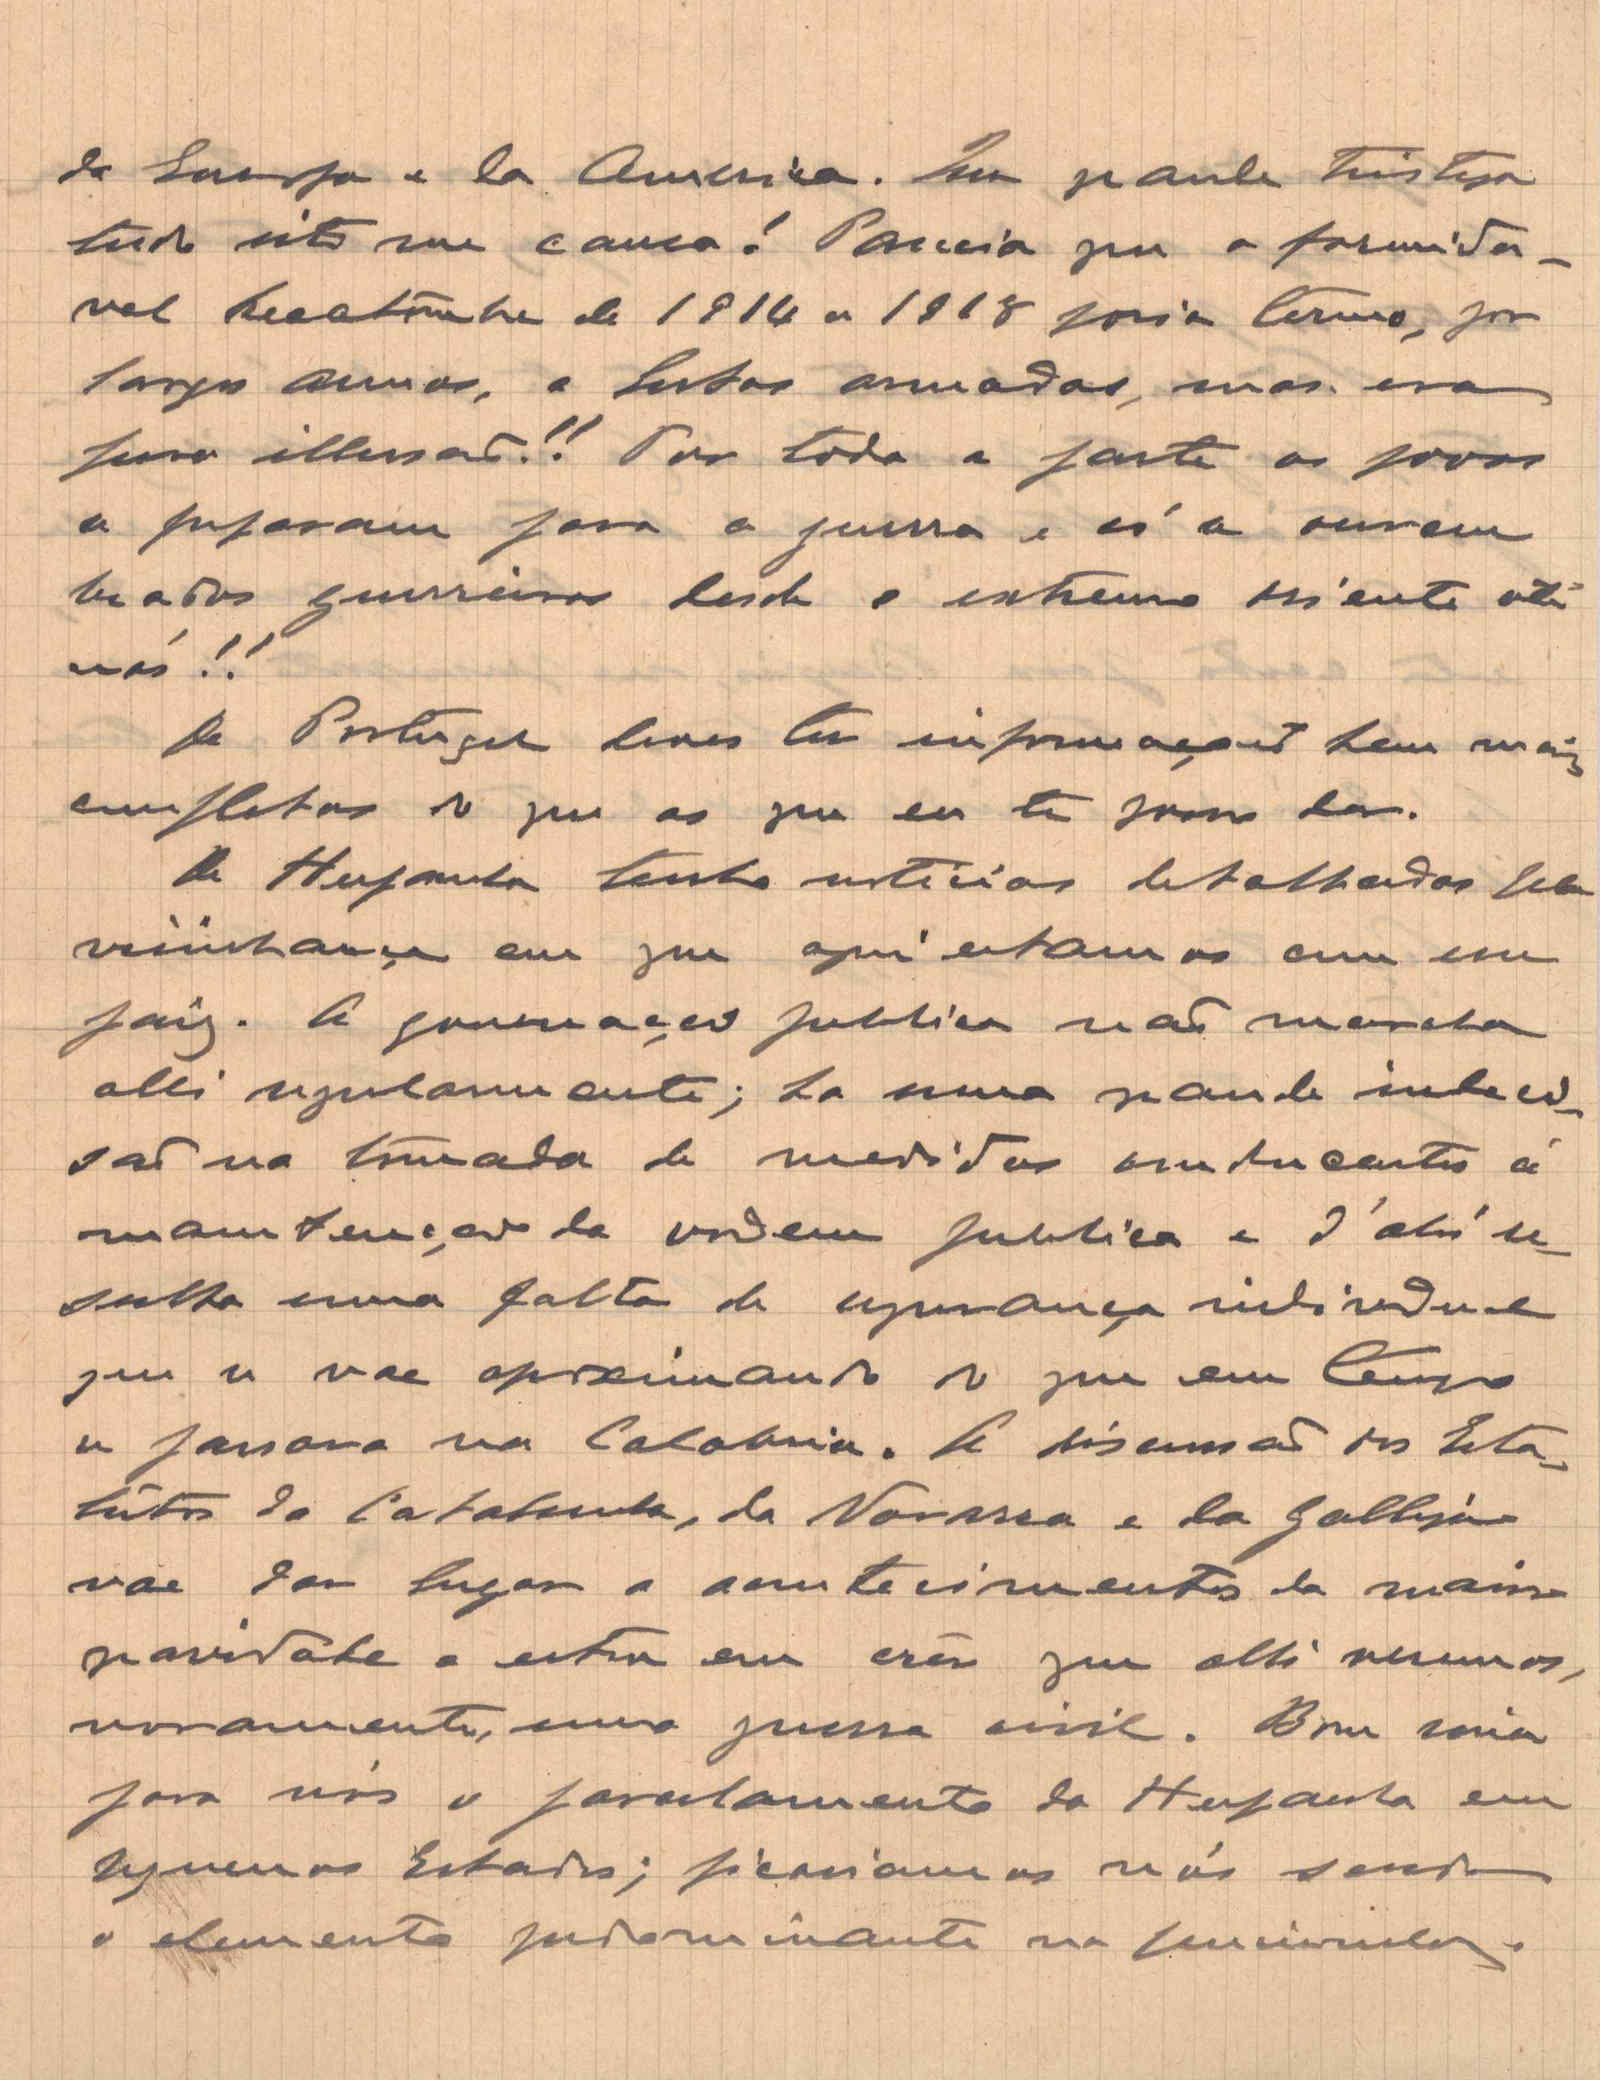 da Europa e da America. Que grande tristesa
tudo isto me causa! Parecia que a formida-
vel hecatômbe de 1914 a 1918 poria têrmo, por
largos annos, a lutas armadas, mas era
pura illusaõ!! Por toda a parte os povos
se preparam para a guerra e só se ouvem
brados guerreiros desde o extremo oriente até
nós!!
De Portugal deves ter informações bem mais
completas do que as que eu te posso dar.
De Hespanha tenho noticias detalhadas pela
visinhança em que aqui estamos com esse
paiz. A governação publica naõ marcha
alli regularmente; ha uma grande indeci-
saõ na tômada de medidas conducentes á
manutenção da ordem publica e d'ahi re-
sulta uma falta de segurança individual
que se vae aproximando do que em tempo
se passava na Calabria. A discussaõ dos Esta-
tutos da Catalunha, da Navarra e da Galliza
vae dar lugar a acontecimentos da maior
gravidade e estou em crêr que alli veremos,
novamente, uma guerra civil. Bom seria
para nós o parcelamento da Hespanha em
pequenos Estados; ficariamos nós sendo
o elemento predominante na peninsula.